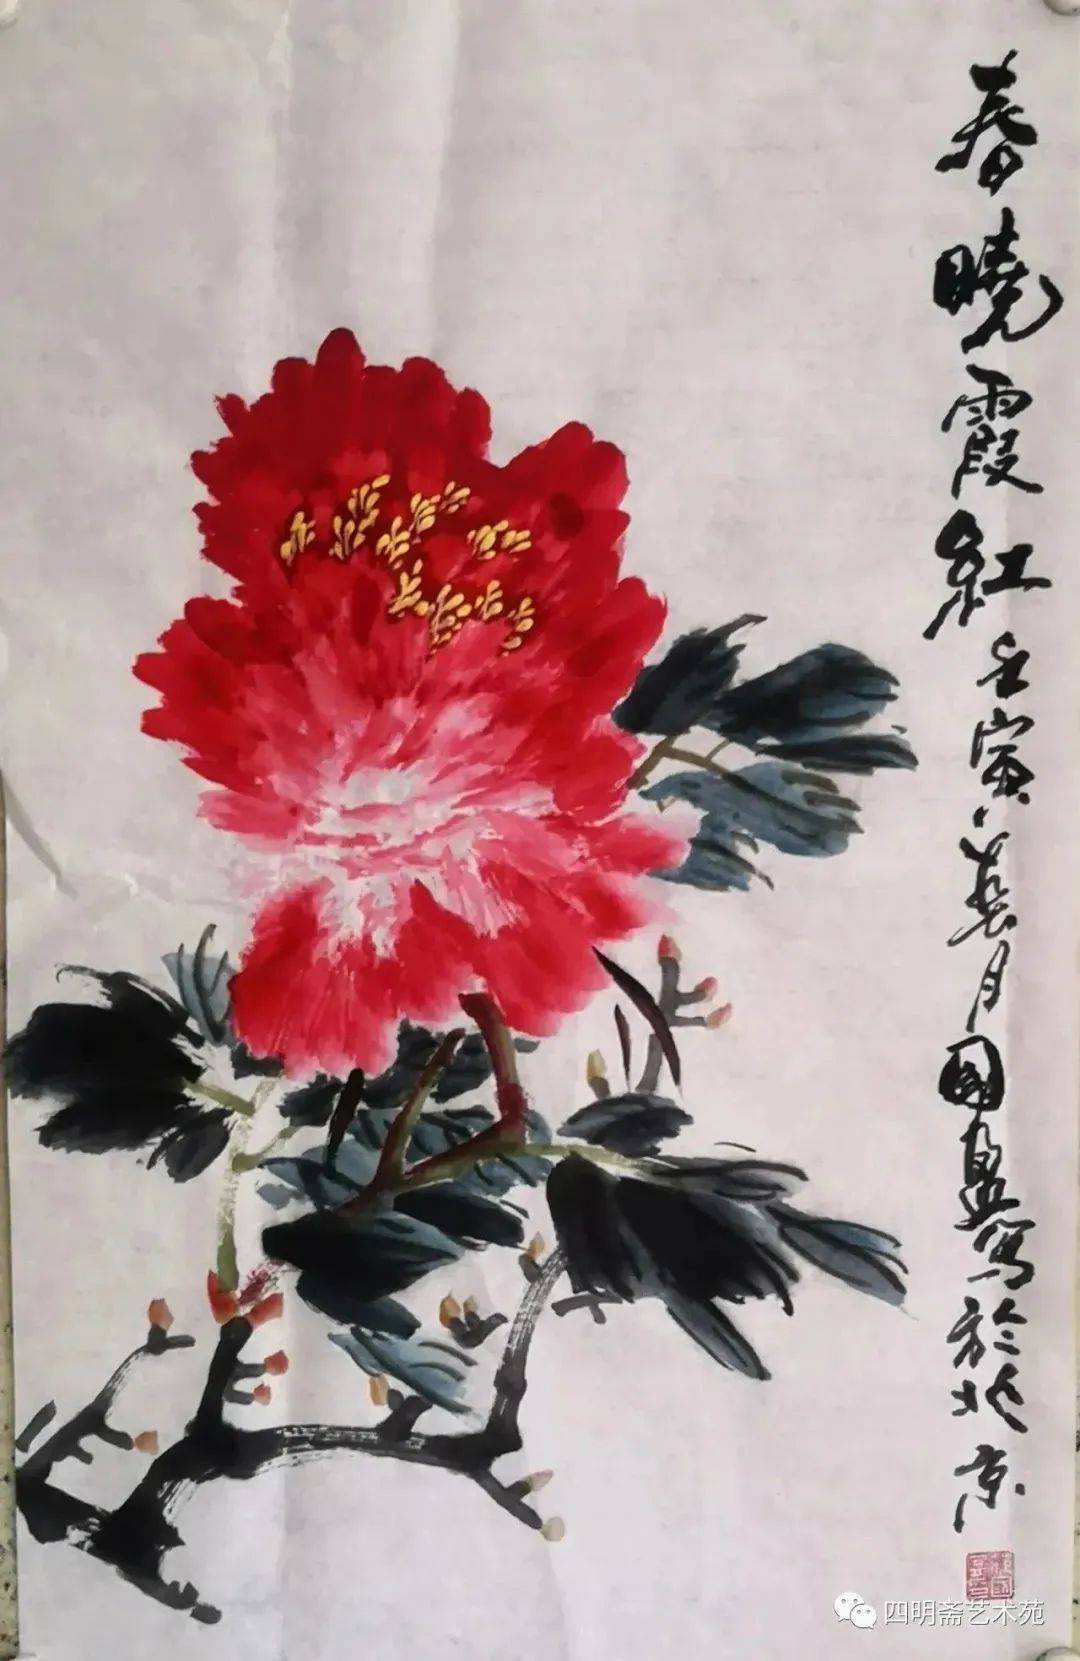 春曉霞紅壬寅荷月國盈写於北京
四明斋艺术苑